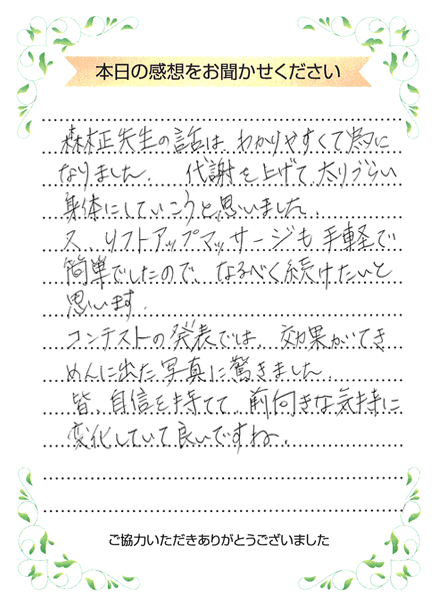 本日の感想をお聞かせください
森柾先生の話は わかりやすくて為に
なりました. 代謝を上げて太りづらい
身体にしていこうと思いました.
又、リフトアップマッサージも手軽で
簡単でしたので なるべく続けたいと
思います.
コンテストの発表では 効果がてき
めんに出た写真に驚きました.
皆 自信を持てて 前向きな気持に
変化していて良いですね.
ご協力いただきありがとうございました